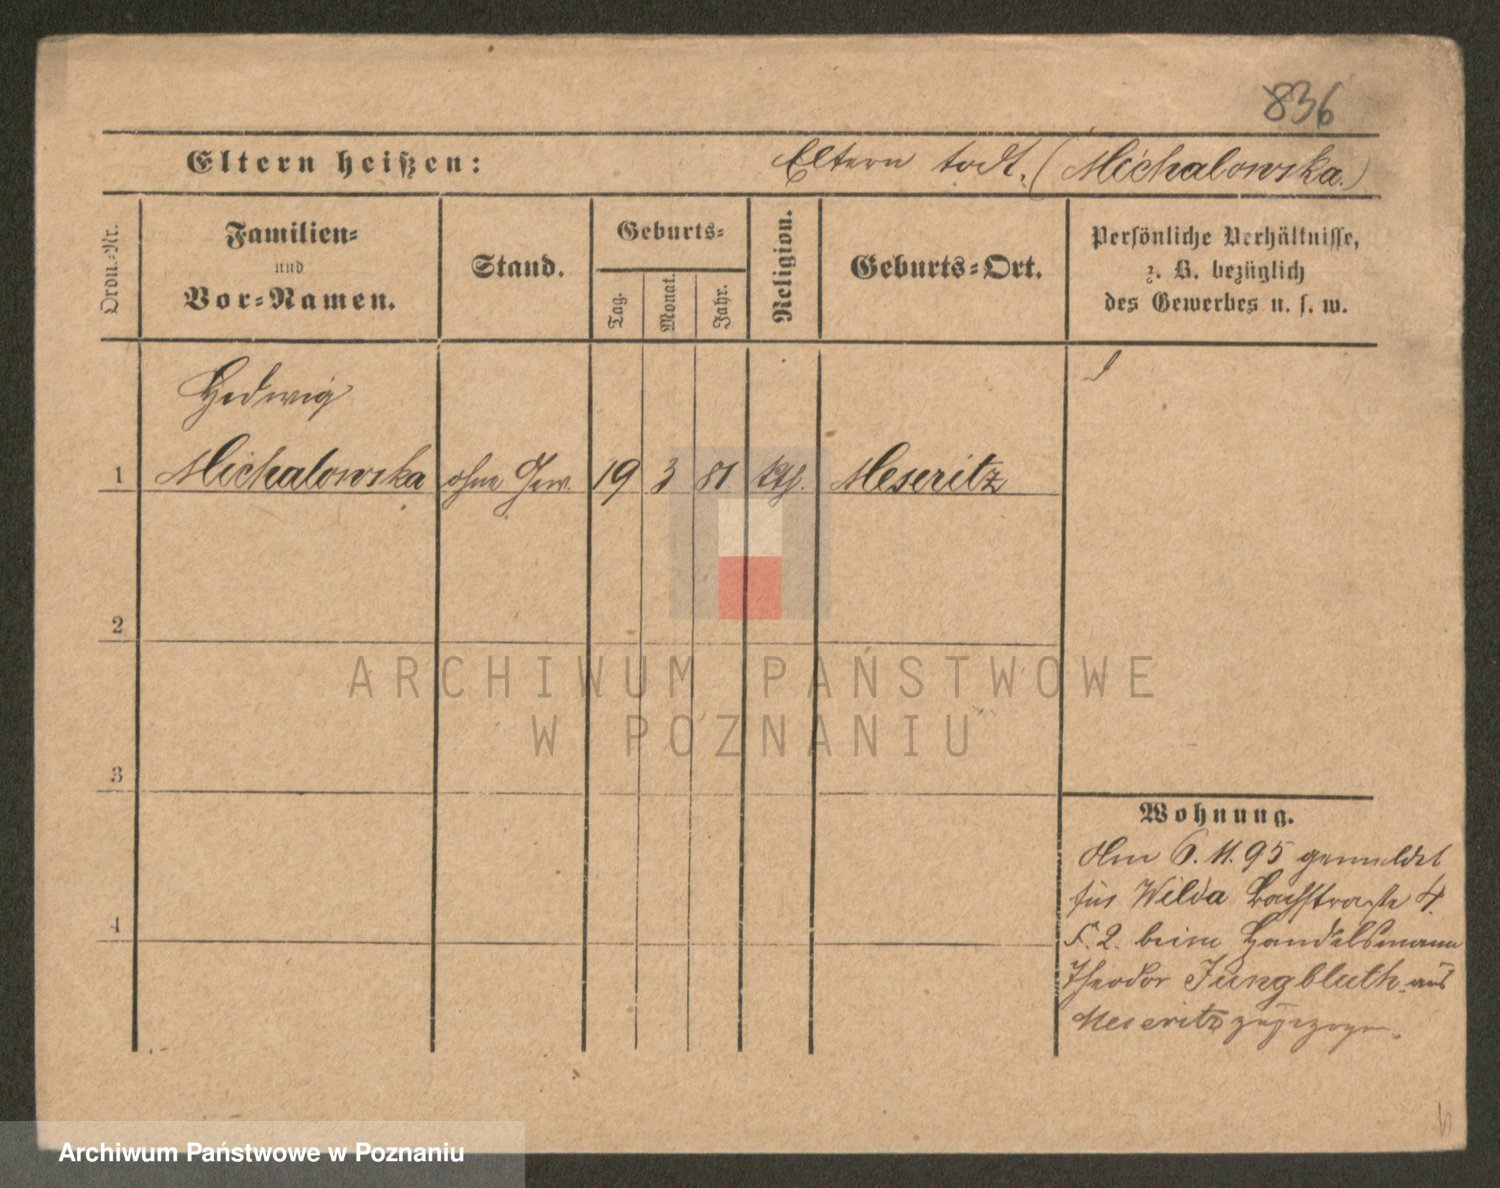 836
Eltern heißen: Eltern todt. (Michalowska.)
Ordn.-Nr.
Familien-
und
Vor-Namen.
Stand.
Geburts-
Tag.
Monat.
Jahr.
Religion.
Geburts-Ort.
Persönliche Verhältnisse,
z. B. bezüglich
des Gewerbes u. s. w.
Hedwig
1 Michalowska ohne Gew. 19 3 81 kth. Meseritz
2
3
4
ARCHIWUM PAŃSTWOWE
W POZNANIU
Wohnung.
Am 6.11.95 gemeldet
für Wilda Bachstraße 4.
beim Handelsmann
Theodor Jungbluth aus
Meseritz zugezogen.
Archiwum Państwowe w Poznaniu